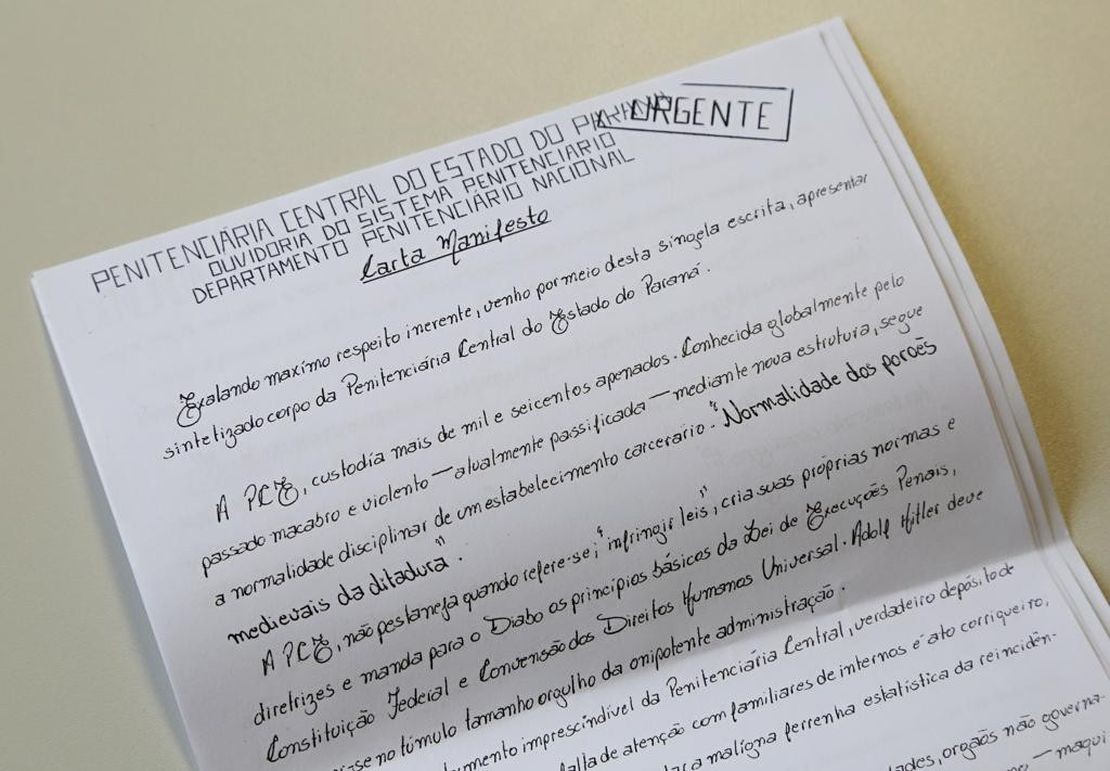 URGENTE
PENITENCIÁRIA CENTRAL DO ESTADO DO PARANÁ
OUVIDORIA DO SISTEMA PENITENCIARIO
DEPARTAMENTO PENITENCIÁRIO NACIONAL
Carta Manifesto
Exalando maximo respeito inerente, venho por meio desta singela escrita, apresentar
sintetizado corpo da Penitenciária Central do Estado do Paraná.
A PCE, custodia mais de mil e seicentos apenados. Conhecida globalmente pelo
passado macabro e violento — atualmente passificada — mediante nova estrutura, segue
a normalidade disciplinar de um estabelecimento carcerario. "Normalidade dos porões
medievais da ditadura".
A PCE, não pestaneja quando refere-se; "infringir leis", cria suas próprias normas e
diretrizes e manda para o Diabo os princípios básicos da Lei de Execuções Penais,
Constituição Federal e Convensão dos Direitos Humanos Universal. Adolf Hitler deve
se no túmulo tamanho orgulho da onipotente administração.
imprescindível da Penitenciária Central, verdadeiro depósito de
falta de atenção com familiares de internos é ato corriqueiro,
a malígna ferrenha estatística da reincidên-
orgãos não governa-
— maqui